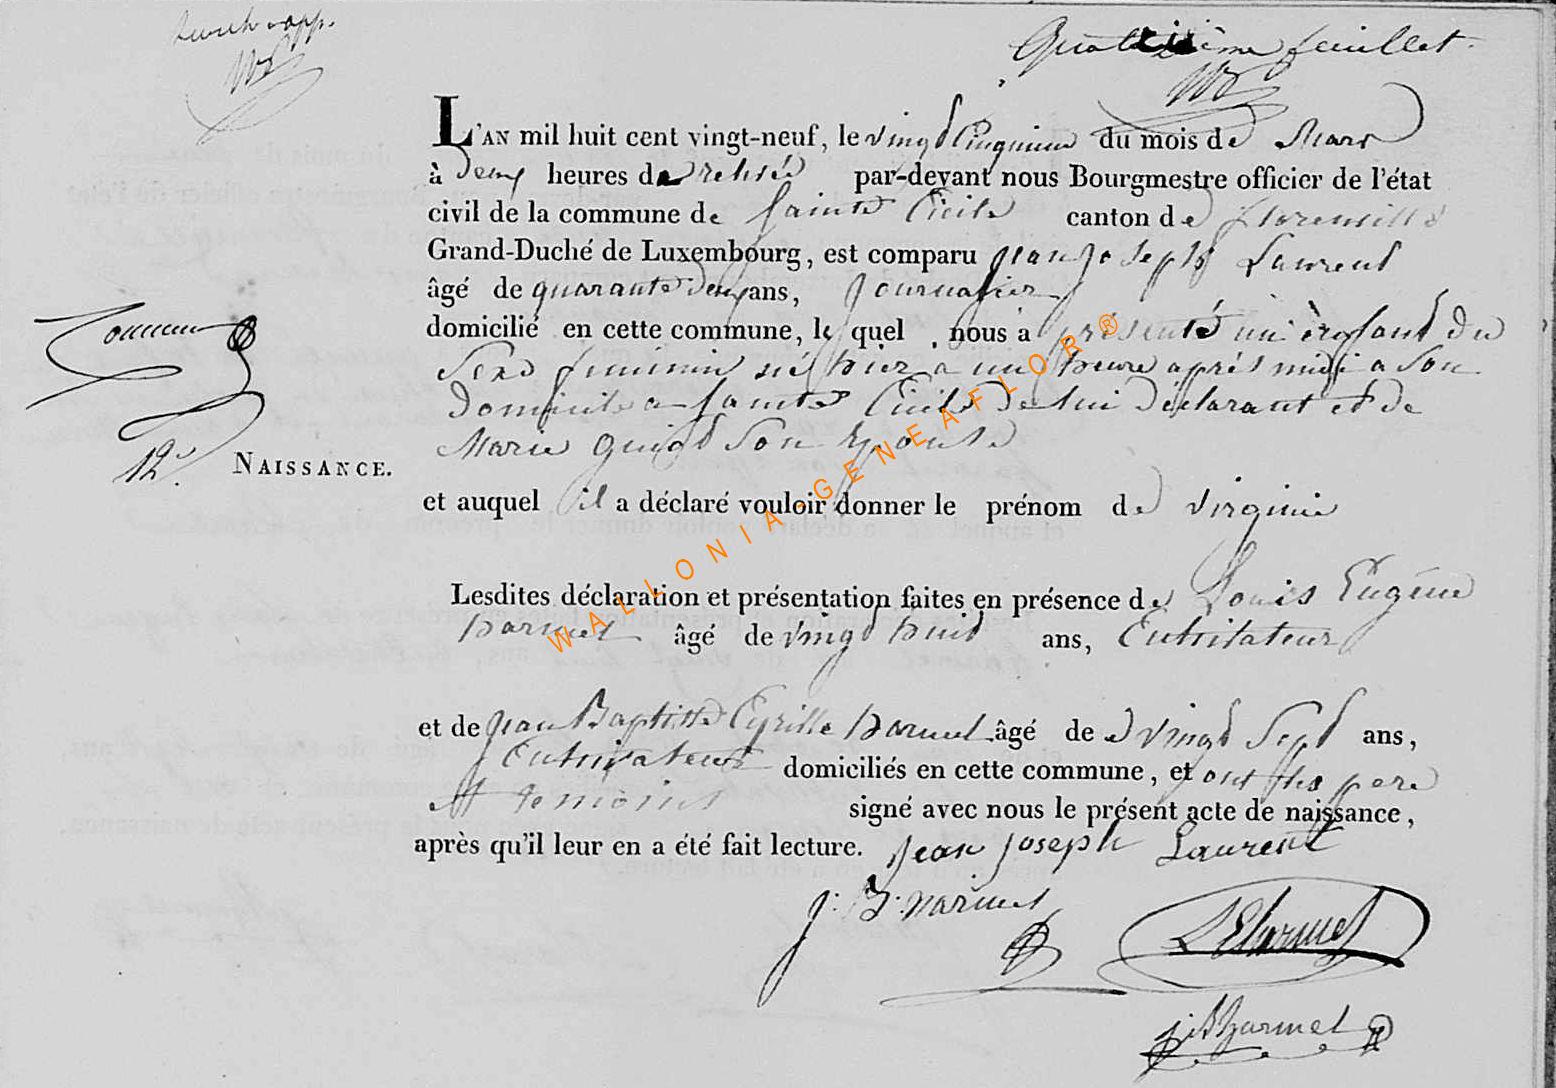 Quatrième feuillet
L'AN mil huit cent vingt-neuf, le vingt cinquième du mois de Mars
à deux heures de relevée par-devant nous Bourgmestre officier de l'état
civil de la commune de Sainte Cécile canton de Florenville
Grand-Duché de Luxembourg, est comparu jean joseph Laurent
âgé de quarante deux ans, journalier
domicilié en cette commune, le quel nous a présenté un enfant du
Sexe feminin né hier a une heure après midi a son
domicile a Sainte Cécile de lui déclarant et de
Marie guiot son Epouse
12e NAISSANCE.
et auquel il a déclaré vouloir donner le prénom de virginie
Lesdites déclaration et présentation faites en présence de Louis Eugène
harmel âgé de vingt huit ans, Cultivateur
et de jean Baptiste Cyrille harmel âgé de vingt Sept ans,
Cultivateur domiciliés en cette commune, et ont les pere
et temoins signé avec nous le présent acte de naissance,
après qu'il leur en a été fait lecture. jean joseph Laurent
LEharmel
jBharmel
WALLONIA-GENEAFLOR®